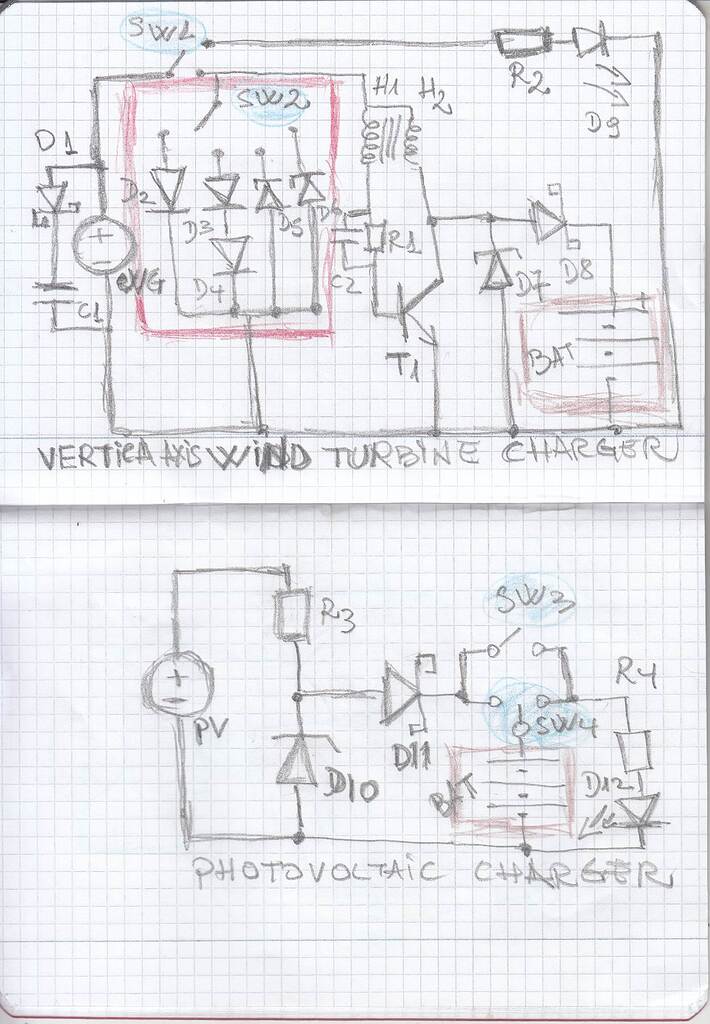 SW1
R2
D9
H1 H2
SW2
D1
+
-
eVG
C1
D2
D3
D4
D5
D6
C2
R1
T1
D7
D8
+
BAT
-
VERTICAL AXIS WIND TURBINE CHARGER
SW3
R3
R4
+
-
PV
D11
SW4
D10
BAT
D12
PHOTOVOLTAIC CHARGER